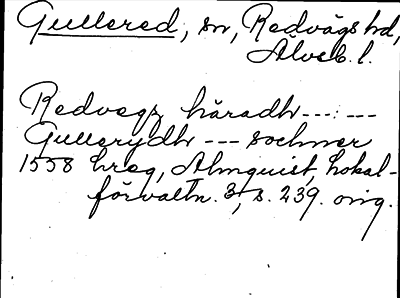 Gullered, sn, Redvägs hd,
Älvsb. l.
Redvegz häradh --- : ---
Gullerydh --- sochner
1558 hreg, Almquist, Lokal-
förvaltn. 3, s. 239. orig.